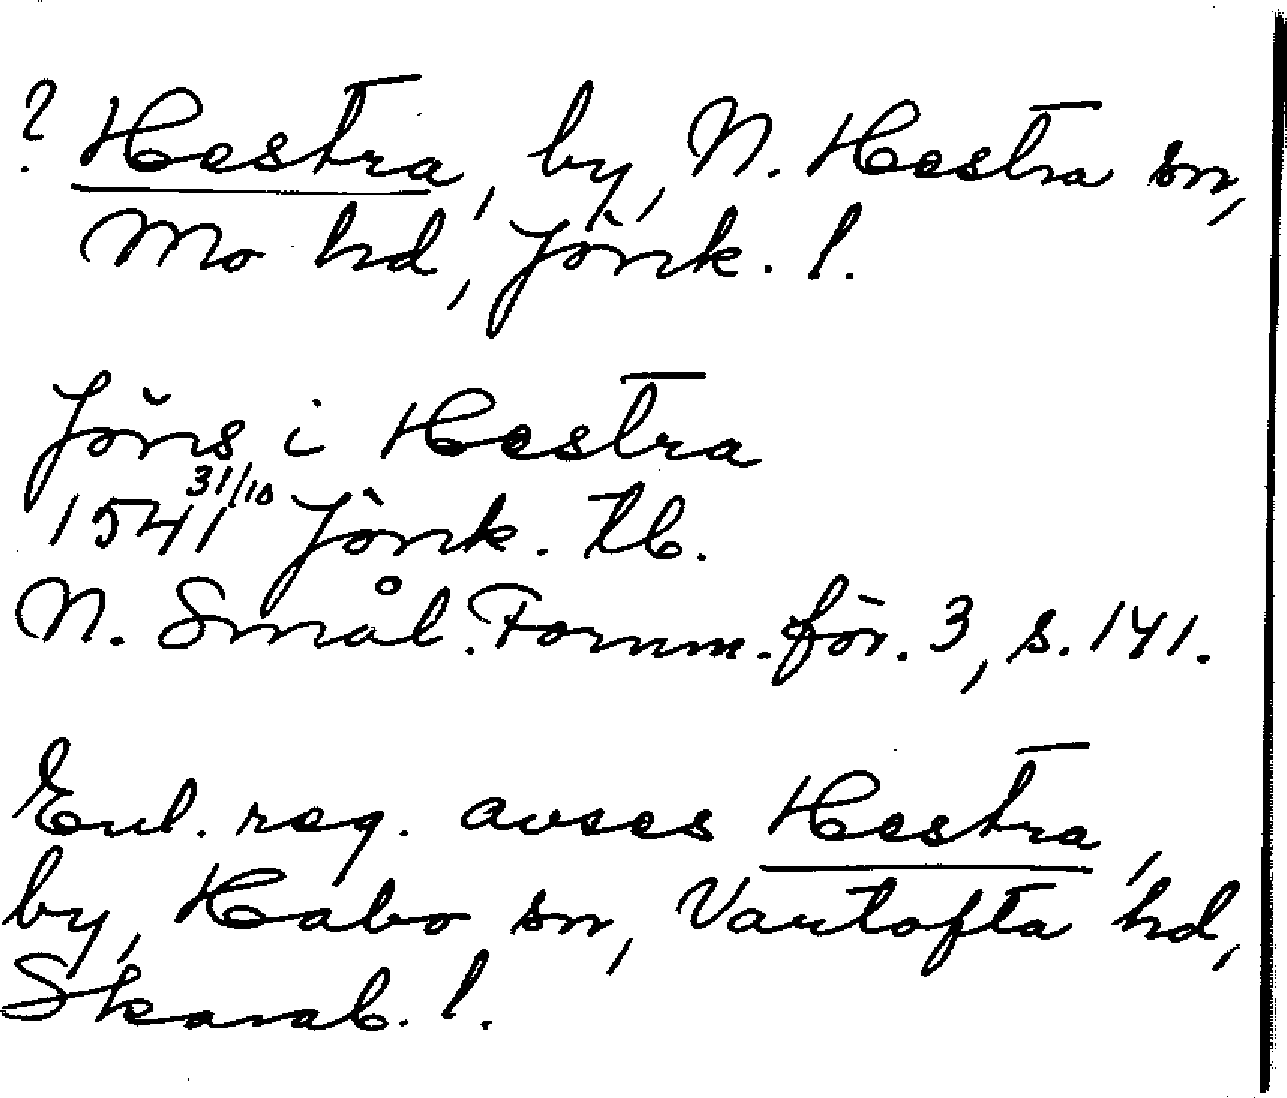 ? Hestra, by, N. Hestra sn,
Mo hd, Jönk. l.
Jöns i Hestra
1541 31/10 Jönk. tb.
N. Smål. Fornm. för. 3, s. 141.
Enl. reg. avses Hestra,
by, Habo sn, Vartofta hd,
Skarab. l.